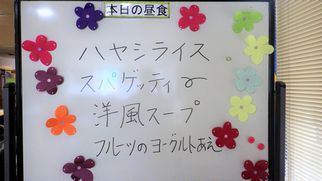 本日の昼食
ハヤシライス
スパゲッティサラダ
洋風スープ
フルーツのヨーグルトあえ